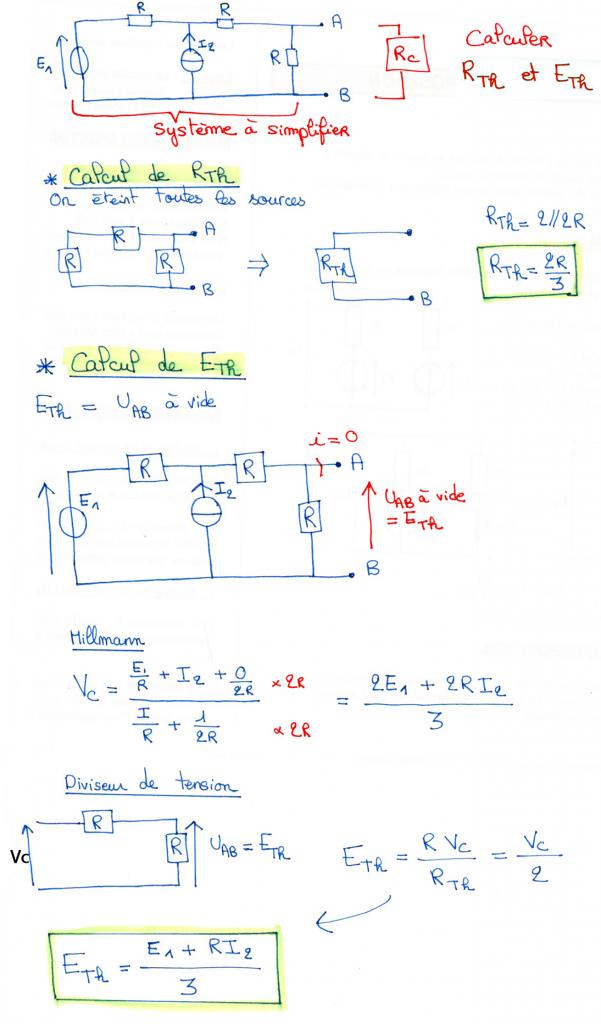 R R A
E1 I2 R B
Rc
Calculer
RTh et ETh
Système à simplifier
* Calcul de RTh
On éteint toutes les sources
R A
R R B
⇒
RTh
B
RTh = 2//2R
RTh = 2R/3
* Calcul de ETh
ETh = UAB à vide
i = 0
R R A
E1 I2 R
UAB à vide
= ETh
B
Millmann
Vc = (E1/R + I2 + 0/2R) / (I/R + 1/2R) × 2R / × 2R = (2E1 + 2RI2) / 3
Diviseur de tension
Vc R R UAB = ETh
ETh = R Vc / RTh = Vc / 2
ETh = (E1 + RI2) / 3